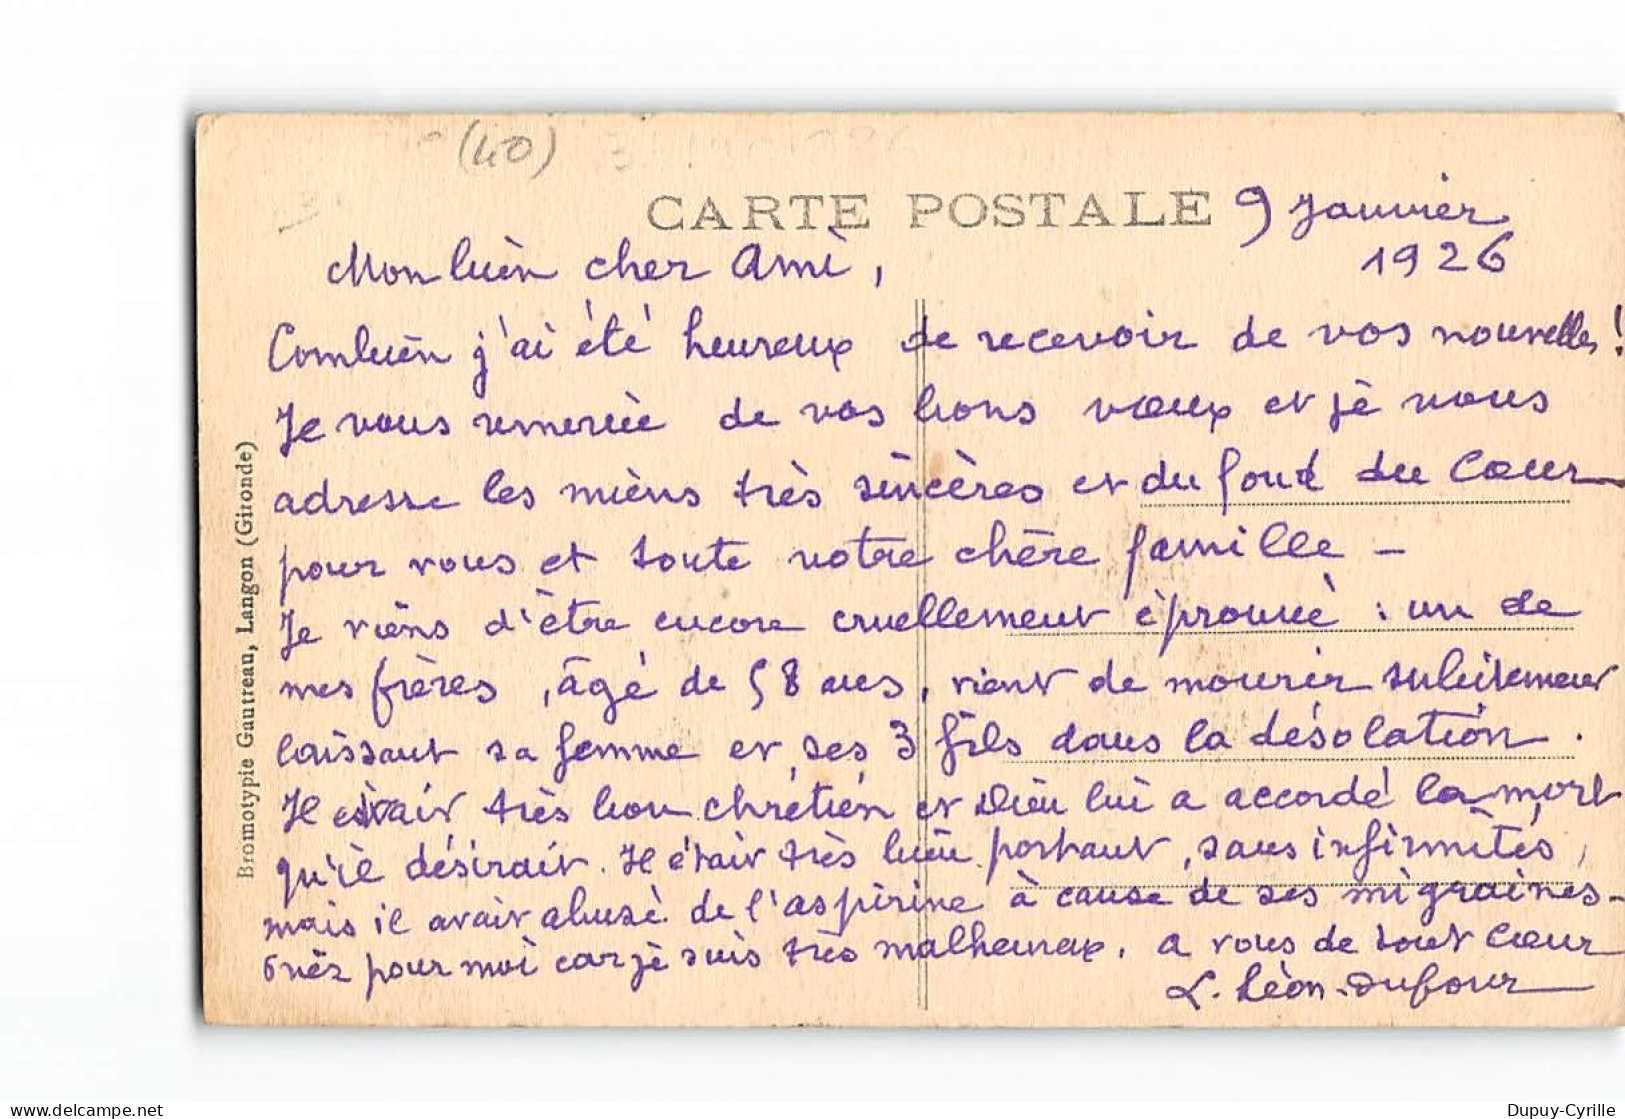 (40)
CARTE POSTALE
9 Janvier
1926
Mon bien cher Ami,
Combien j'ai été heureux de recevoir de vos nouvelles !
Je vous remercie de vos bons vœux et je vous
adresse les miens très sincères et du fond du Cœur
pour vous et toute votre chère famille -
Je viens d'être encore cruellement éprouvé : un de
mes frères, âgé de 58 ans, vient de mourir subitement
laissant sa femme et ses 3 fils dans la désolation.
Il était très bon chrétien et Dieu lui a accordé la mort
qu'il désirait. Il était très bien portant, sans infirmités,
mais il avait abusé de l'aspirine à cause de ses migraines -
Priez pour moi car je suis très malheureux. A vous de tout Cœur
L. Léon-Dufour
Bromotypie Gautreau, Langon (Gironde)
Dupuy-Cyrille
www.delcampe.net